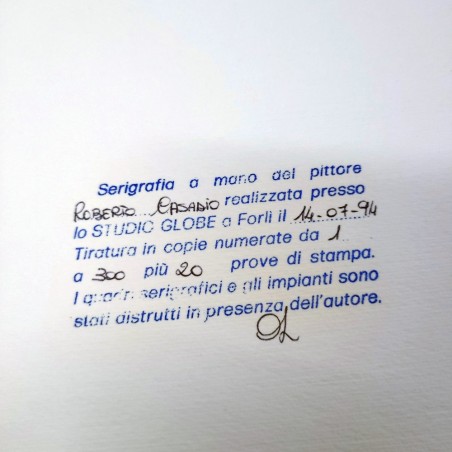 Serigrafia a mano del pittore
ROBERTO CASADIO realizzata presso
lo STUDIO GLOBE a Forlì il 14-07-94
Tiratura in copie numerate da 1
a 300 più 20 prove di stampa.
I quadri serigrafici e gli impianti sono
stati distrutti in presenza dell'autore.